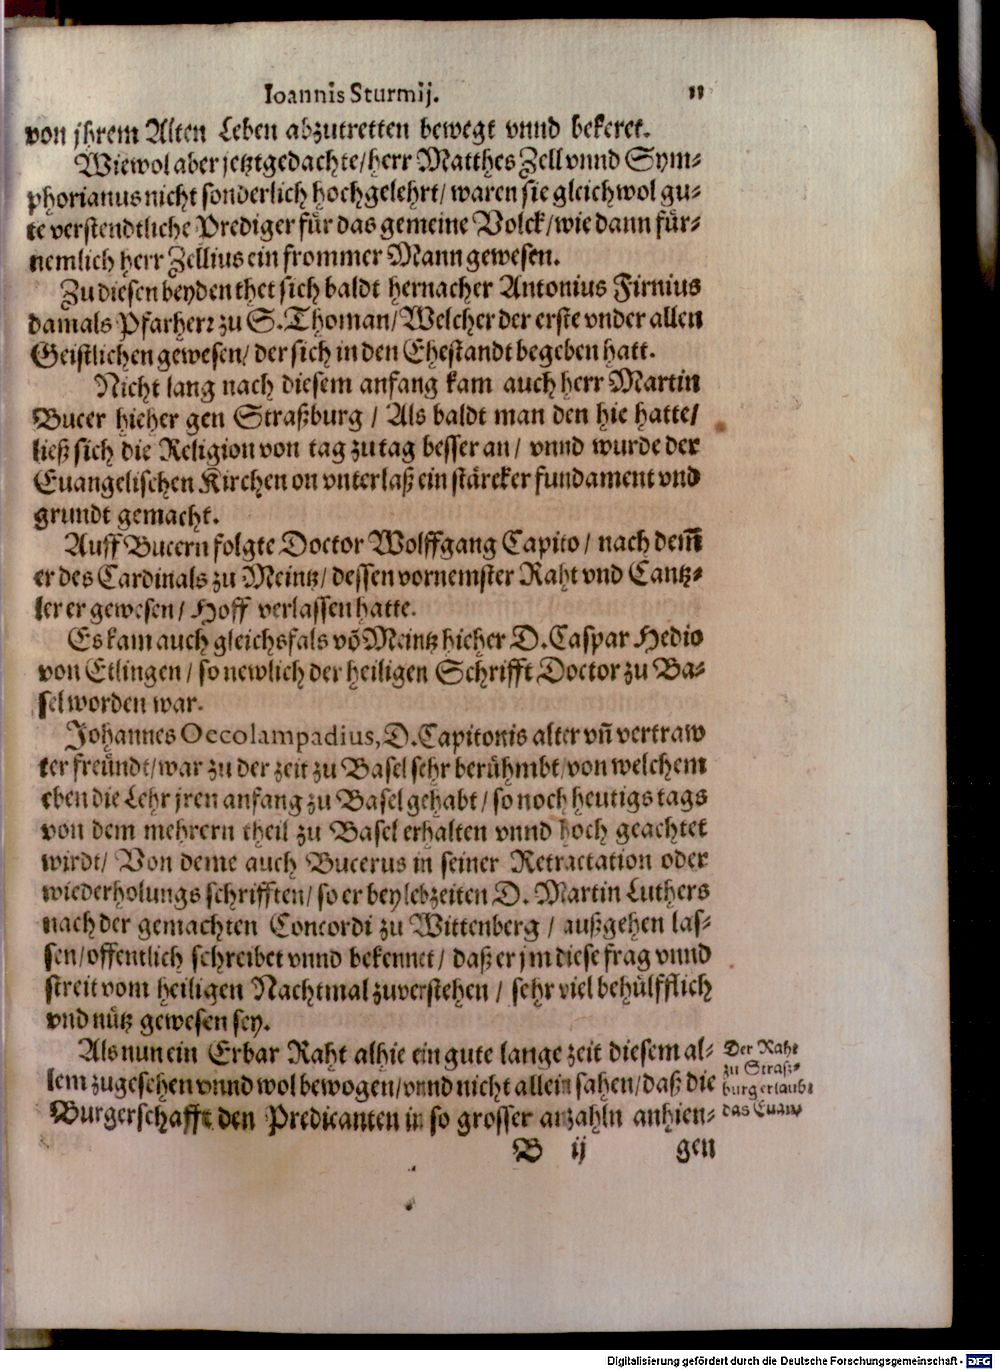 Ioannis Sturmij. 11
von jhrem Alten Leben abzutretten bewegt vnnd bekeret.
Wiewol aber jetztgedachte/herr Matthes Zell vnnd Sym-
phorianus nicht sonderlich hochgelehrt/ waren sie gleichwol gu-
te verstendtliche Prediger für das gemeine Volck/wie dann für-
nemlich herr Zellius ein frommer Mann gewesen.
Zu diesen beyden thet sich baldt hernacher Antonius Firnius
damals Pfarherr zu S. Thoman/Welcher der erste vnder allen
Geistlichen gewesen/ der sich in den Ehestandt begeben hatt.
Nicht lang nach diesem anfang kam auch herr Martin
Bucer hieher gen Straßburg / Als baldt man den hie hatte/
ließ sich die Religion von tag zu tag besser an/ vnnd wurde der
Euangelischen Kirchen on vnterlaß ein stärcker fundament vnd
grundt gemacht.
Auff Bucern folgte Doctor Wolffgang Capito / nach dem̃
er des Cardinals zu Meintz/ dessen vornemster Raht vnd Cantz-
ler er gewesen/ Hoff verlassen hatte.
Es kam auch gleichsfals võ Meintz hieher D. Caspar Hedio
von Etlingen / so newlich der heiligen Schrifft Doctor zu Ba-
sel worden war.
Johannes Oecolampadius, D. Capitonis alter vñ vertraw
ter freündt/war zu der zeit zu Basel sehr berühmbt/von welchem
eben die Lehr jren anfang zu Basel gehabt/ so noch heutigs tags
von dem mehrern theil zu Basel erhalten vnnd hoch geachtet
wirdt/ Von deme auch Bucerus in seiner Retractation oder
wiederholungs schrifften/ so er bey lebzeiten D. Martin Luthers
nach der gemachten Concordi zu Wittenberg / außgehen las-
sen/offentlich schreibet vnnd bekennet/ daß er jm diese frag vnnd
streit vom heiligen Nachtmal zuverstehen / sehr viel behülfflich
vnd nütz gewesen sey.
Als nun ein Erbar Raht alhie ein gute lange zeit diesem al-
lem zugesehen vnnd wol bewogen/vnnd nicht allein sahen/daß die
Burgerschafft den Predicanten in so grosser anzahln anhien-
Der Raht
zu Straß-
burg erlaubt
das Euan-
B ij gen
Digitalisierung gefördert durch die Deutsche Forschungsgemeinschaft - DFG